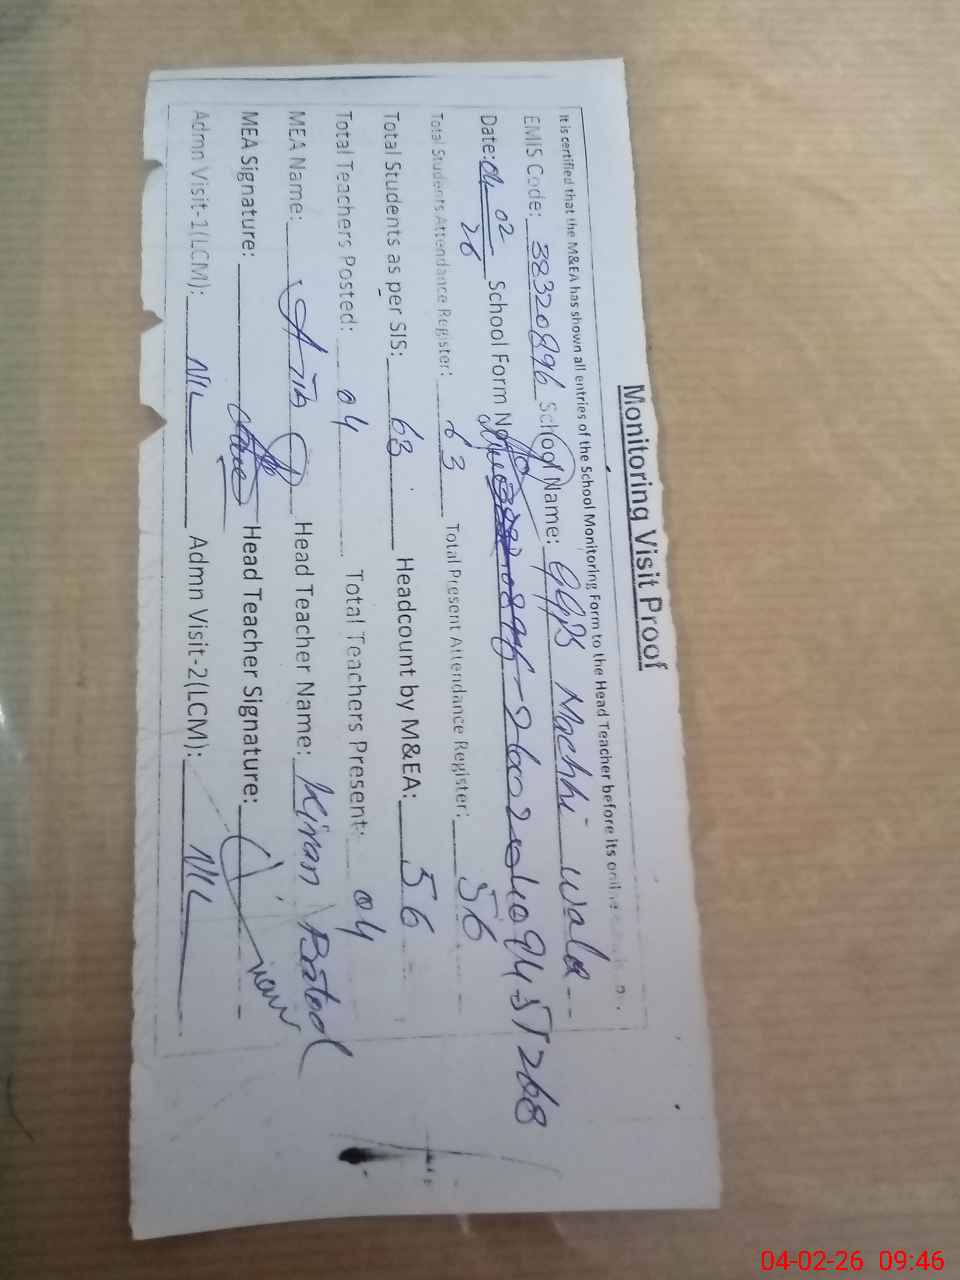 Monitoring Visit Proof
It is certified that the M&EA has shown all entries of the School Monitoring Form to the Head Teacher before its online
EMIS Code: 38320896 School Name: GGPS Machhi wala
Date: 04 02 26 School Form No
Total Students Attendance Register: 63 Total Present Attendance Register: 56
Total Students as per SIS: 63 Headcount by M&EA: 56
Total Teachers Posted: 04 Total Teachers Present: 04
MEA Name: Head Teacher Name: Kiran
MEA Signature: Head Teacher Signature:
Admn Visit-1(LCM): NIL Admn Visit-2(LCM): NIL
04-02-26 09:46